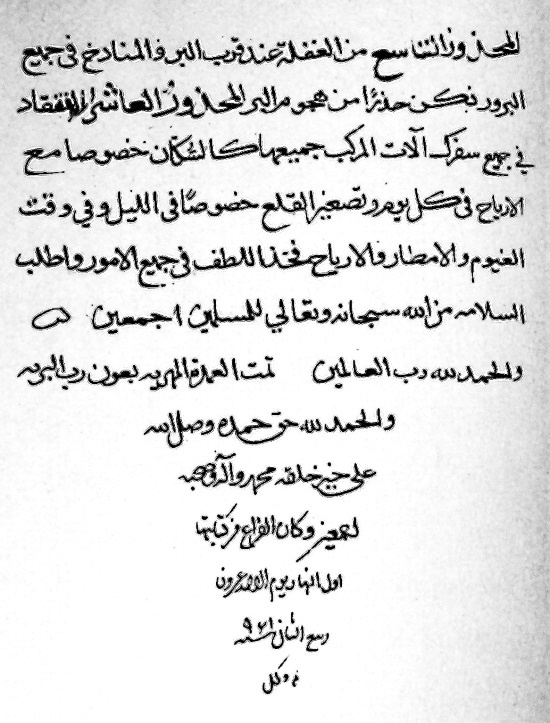 المحذور التاسع من الغفلة عند قرب البر والمنادخ في جميع
البرور فكن حذرًا من هجوم البر المحذور العاشر التفقاد
في جميع سفرك آلات المركب جميعها كالسُّكان خصوصا مع
الارياح في كل يوم وتصغير القلع خصوصًا في الليل وفي وقت
الغيوم والامطار والارياح فخذ اللطف في جميع الامور واطلب
السلامه من الله سبحانه وتعالي للمسلمين اجمعين
والحمد لله رب العالمين تمت العمدة المهريه بعون رب البريه
والحمد لله حق حمده وصل الله
علي خير خلقه محمد وآله وصحبه
اجمعين وكان الفراغ من كتابتها
اول النهار يوم الاحد
ربيع الثاني سنه ٩٦١